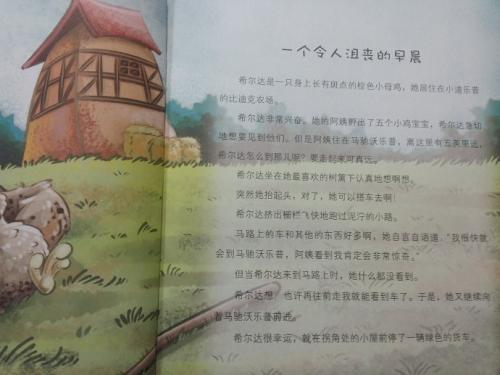 一个令人沮丧的早晨
希尔达是一只身上长有斑点的棕色小母鸡，她居住在小道乐普
的比迪克农场。
希尔达非常兴奋。她的阿姨孵出了五个小鸡宝宝，希尔达急切
地想要见到他们。但是阿姨住在马驰沃乐普，离这里有五英里远，
希尔达怎么到那儿呢？要走起来可真远。
希尔达坐在她最喜欢的树篱下认真地想啊想。
突然她抬起头，对了，她可以搭车去啊！
希尔达挤出栅栏飞快地跑过泥泞的小路。
马路上的车和其他的东西好多啊，她自言自语道，“我很快就
会到马驰沃乐普，阿姨看到我肯定会非常惊奇。”
但当希尔达来到马路上时，她什么都没看到。
希尔达想，也许再往前走我就能看到车了。于是，她又继续向
着马驰沃乐普前进。
希尔达很幸运，就在拐角处的小屋前停了一辆绿色的货车。